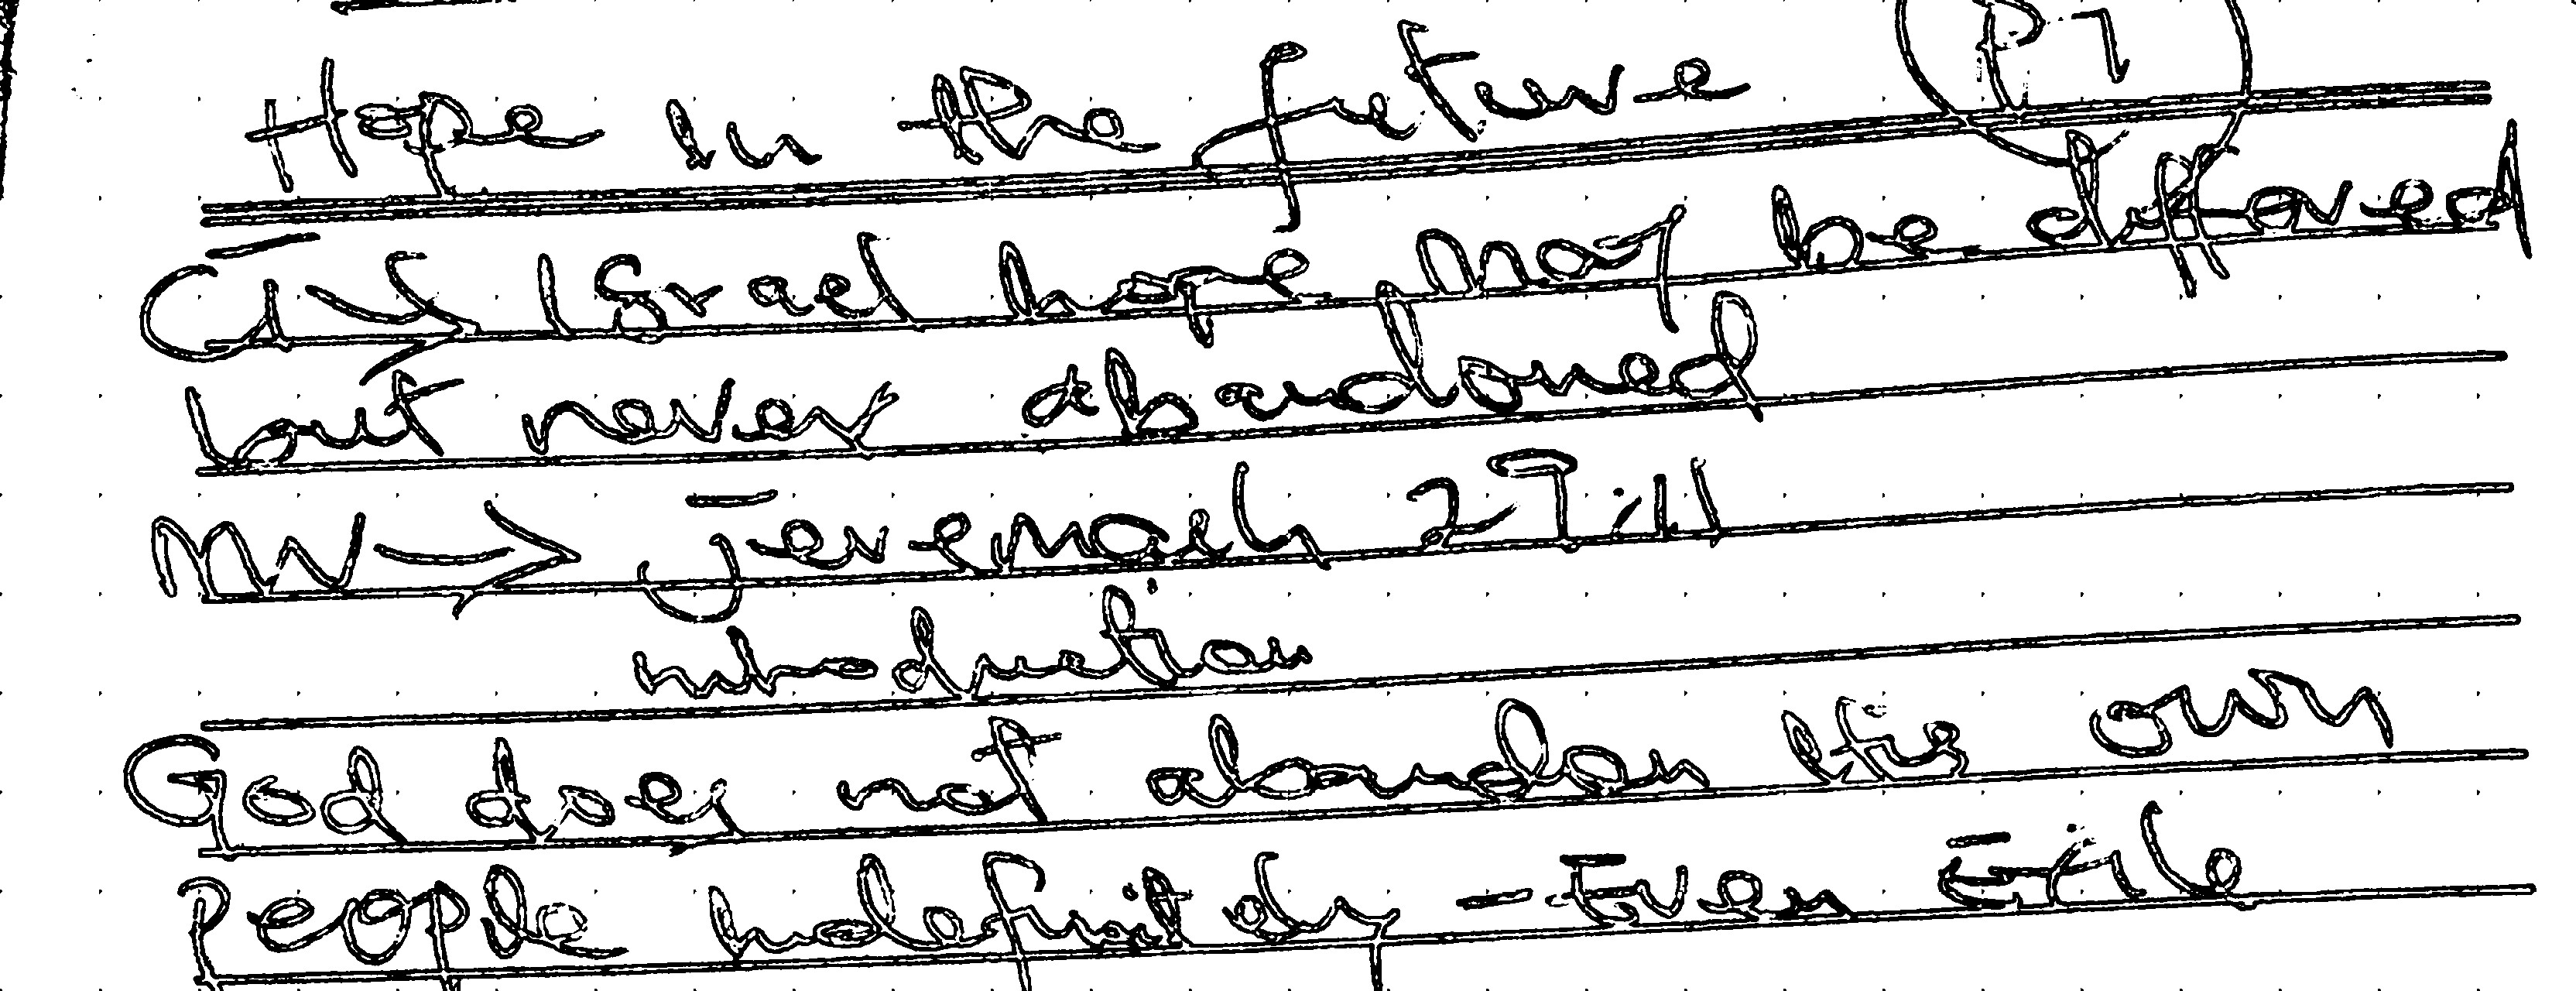 Hope in the future P1
CI → Israel hope may be differed
but never abandoned
MV → Jeremaih 29:11
introduction
God does not abandon His own
People indefinitely - Even Exile